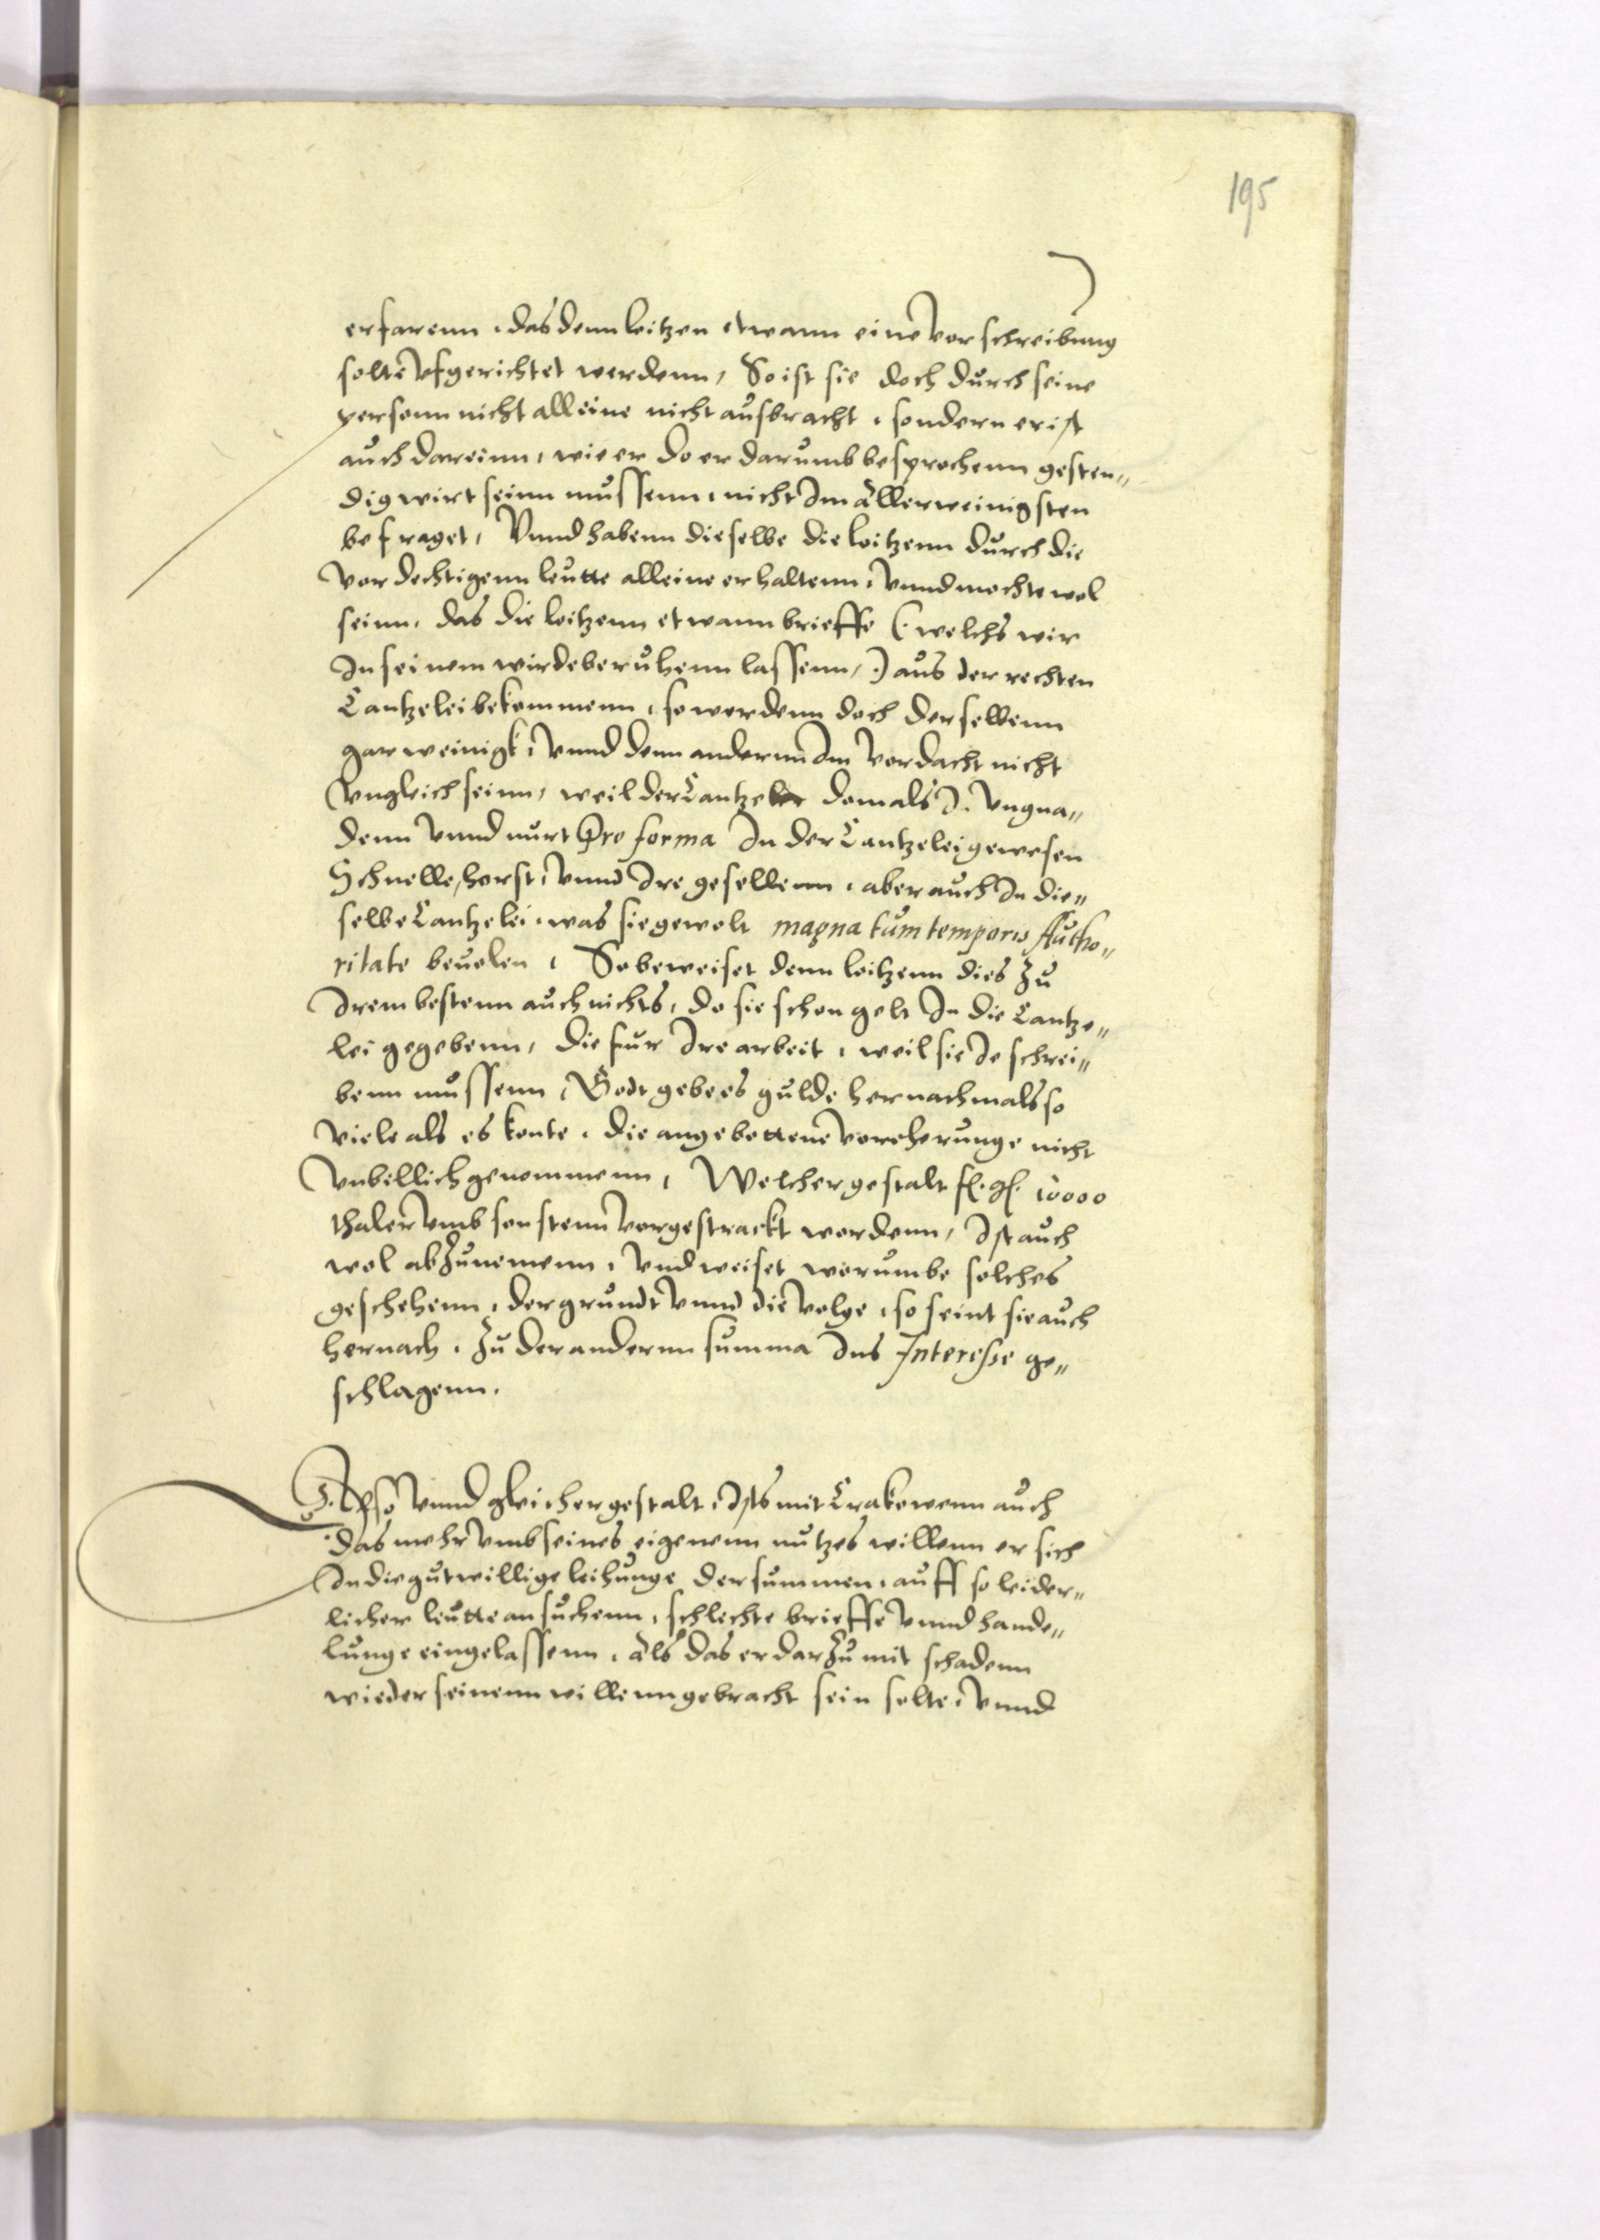 195
erfarenn, das denn loitzen etwann eine vorschreibung
solte ufgerichtet werdenn, So ist sie doch durch seine
personn nicht alleine nicht ausbracht, sondern er ist
auch dareinn, wie er do er darumb besprochenn gesten„
dig wirt seinn mussenn, nicht Im allerweinigsten
befraget, Vnnd habenn dieselbe die loitzenn durch die
vordechtigenn leutte alleine erhaltenn, vnnd mochte wol
seinn, das die loitzenn etwann brieffe (: welchs wir
In seinem wirde beruhenn lassenn, :) aus der rechten
Cantzelei bekommenn, so werdenn doch derselbenn
gar weinigk, vnnd denn andernn Im vordacht nicht
vngleich seinn, weil der Cantzeler domals I. vngna„
denn vnnd nurt pro forma In der Cantzelei gewesen
Schnelle, horst, vnnd Ire gesellenn, aber auch In die„
selbe Cantzelei, was sie gewolt magna tum temporis Autho„
ritate beuolen, So beweiset denn loitzenn dies zu
Irem bestenn auch nichts, do sie schon gelt In die Cantze„
lei gegebenn, die fur Ire arbeit, weil sie Je schrei„
benn mussenn, Godt gebe es gulde hernachmals so
viele als es konte, die angebottene vorehrunge nicht
vnbillich genommenn, Welcher gestalt f. g. 10000
thaler vmb sonstenn vorgestrackt wordenn, Ist auch
wol abzunemenn, vnd weiset worumbe solches
geschehenn, der grundt vnnd die volge, so seint sie auch
hernach, zu der andernn summa Ins Interesse ge„
schlagenn.
3. Also vnnd gleicher gestalt, Ists mit Crakowenn auch
das mehr vmb seines eigenenn nutzes willenn er sich
In die gutwillige leihunge der summen, auff so leider„
licher leutte ansuchenn, schlechte brieffe vnnd hande„
lunge eingelassenn, als das er darzu mit schadenn
wieder seinenn willenn gebracht sein solte, vnnd